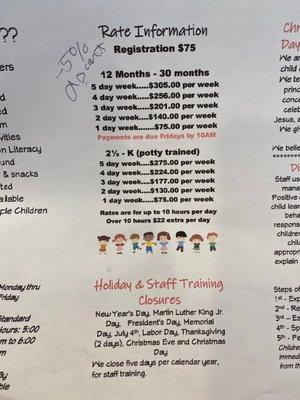 ??
ers
Rate Information
Registration $75
-5%
12 Months - 30 months
5 day week.....$305.00 per week
4 day week.....$256.00 per week
3 day week.....$201.00 per week
2 day week.....$140.00 per week
1 day week......$75.00 per week
Payments are due Fridays by 10AM
2½ - K (potty trained)
5 day week.....$275.00 per week
4 day week.....$224.00 per week
3 day week.....$177.00 per week
2 day week.....$130.00 per week
1 day week......$75.00 per week
Rates are for up to 10 hours per day
Over 10 hours $22 extra per day
Holiday & Staff Training
Closures
New Year's Day, Martin Luther King Jr.
Day, President's Day, Memorial
Day, July 4th, Labor Day, Thanksgiving
(2 days), Christmas Eve and Christmas
Day
We close five days per calendar year,
for staff training.
vities
on Literacy
ound
& snacks
ted
ailable
ple Children
Monday thru
Friday
Standard
Hours: 5:00
m to 6:00
m
By
ble
Day
We are
child
We te
princ
conce
celeb
Jesus, a
We gi
We belie
Di
Staff us
manag
Positive
child lea
behav
respon
childre
childre
appropria
explain
Steps of
1st - Exp
2nd - Re
3rd - Es
4th - Sp
5th - Pe
Children
immed
from th